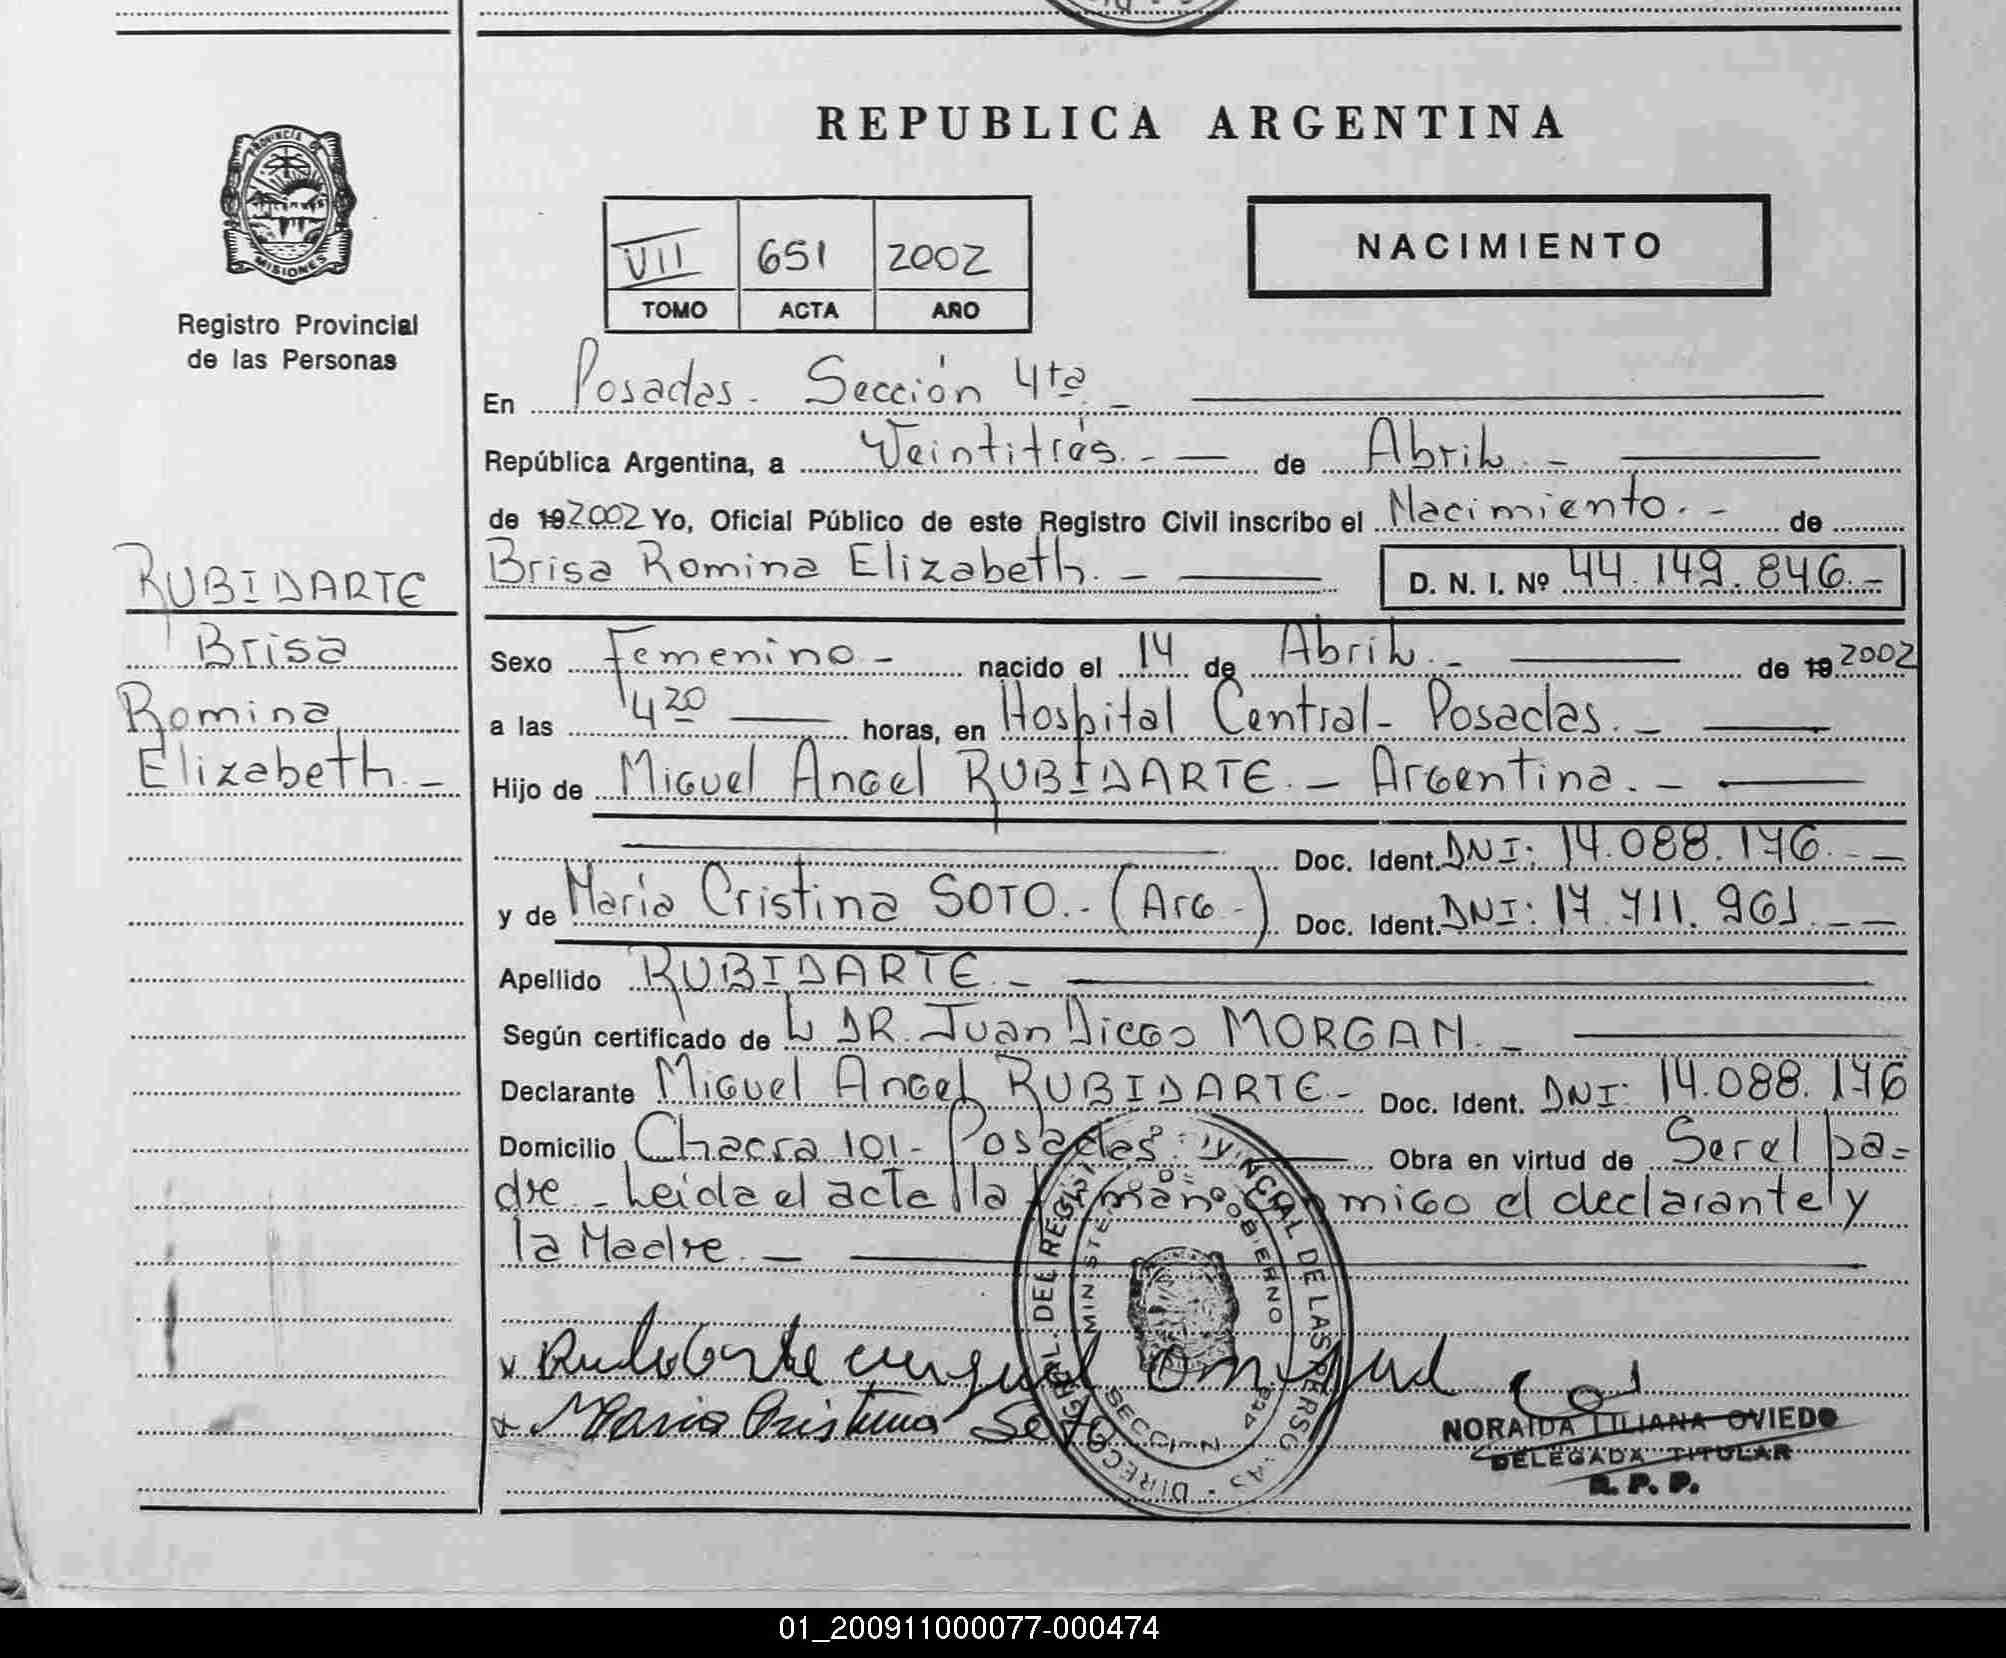 REPUBLICA ARGENTINA
PROVINCIA DE
MISIONES
Registro Provincial
de las Personas
VII 651 2002
TOMO ACTA AÑO
NACIMIENTO
En Posadas. Sección 4ta. -
República Argentina, a Veintitrés. - de Abril. -
de 19 2002 Yo, Oficial Público de este Registro Civil inscribo el Nacimiento. - de
Brisa Romina Elizabeth. - D. N. I. Nº 44.149.846. -
RUBIDARTE
Brisa
Romina
Elizabeth. -
Sexo Femenino - nacido el 14 de Abril. - de 19 2002
a las 4 20 horas, en Hospital Central - Posadas. -
Hijo de Miguel Angel RUBIDARTE. - Argentina. -
Doc. Ident. DNI: 14.088.176. -
y de María Cristina SOTO. - (Arg -) Doc. Ident. DNI: 17.711.961. -
Apellido RUBIDARTE. -
Según certificado de L DR. Juan Diego MORGAN. -
Declarante Miguel Angel RUBIDARTE - Doc. Ident. DNI: 14.088.176
Domicilio Chacra 101 - Posadas. Obra en virtud de Ser el pa=
dre - Leida el acta la firman conmigo el declarante y
la Madre. -
DEL REGISTRO PROVINCIAL DE LAS PERSONAS - DIRECC GRAL.
MINISTE DE GOBIERNO
SECCION 4ta
x Rubidarte miguel
x Maria Cristina Soto
NORAIDA LILIANA OVIEDO
DELEGADA TITULAR
R. P. P.
01_200911000077-000474